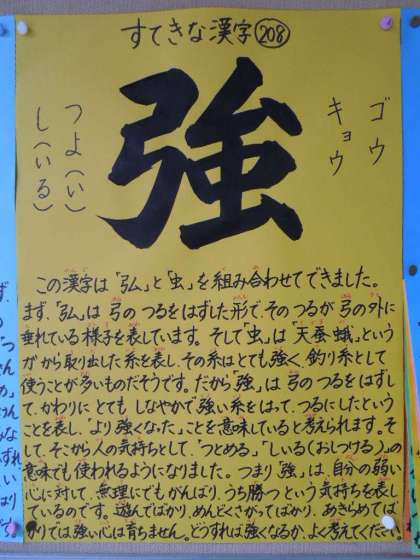 すてきな漢字 208
強
ゴウ
キョウ
つよ（い）
し（いる）
この漢字は「弘」と「虫」を組み合わせてできました。
まず、「弘」は 弓の つるをはずした形で、その つるが 弓の外に
垂れている様子を表しています。そして「虫」は「天蚕・蛾」という
ガから取り出した糸を表し、その糸はとても強く、釣り糸として
使うことが多いものだそうです。だから「強」は 弓の つるをはずし
て、かわりに とても しなやかで強い糸をはって、つるにしたという
ことを表し、「より強くなった」ことを意味していると考えられます。そ
して、そこから人の気持ちとして、「つとめる」「しいる（おしつける）」の
意味でも使われるようになりました。つまり「強」は、自分の弱い
心に対して、無理にでもがんばり、うち勝つ という 気持ちを表し
ているのです。遊んでばかり、めんどくさがってばかり、あきらめてば
かりでは強い心は育ちません。どうすれば強くなるか、よく考えてください。